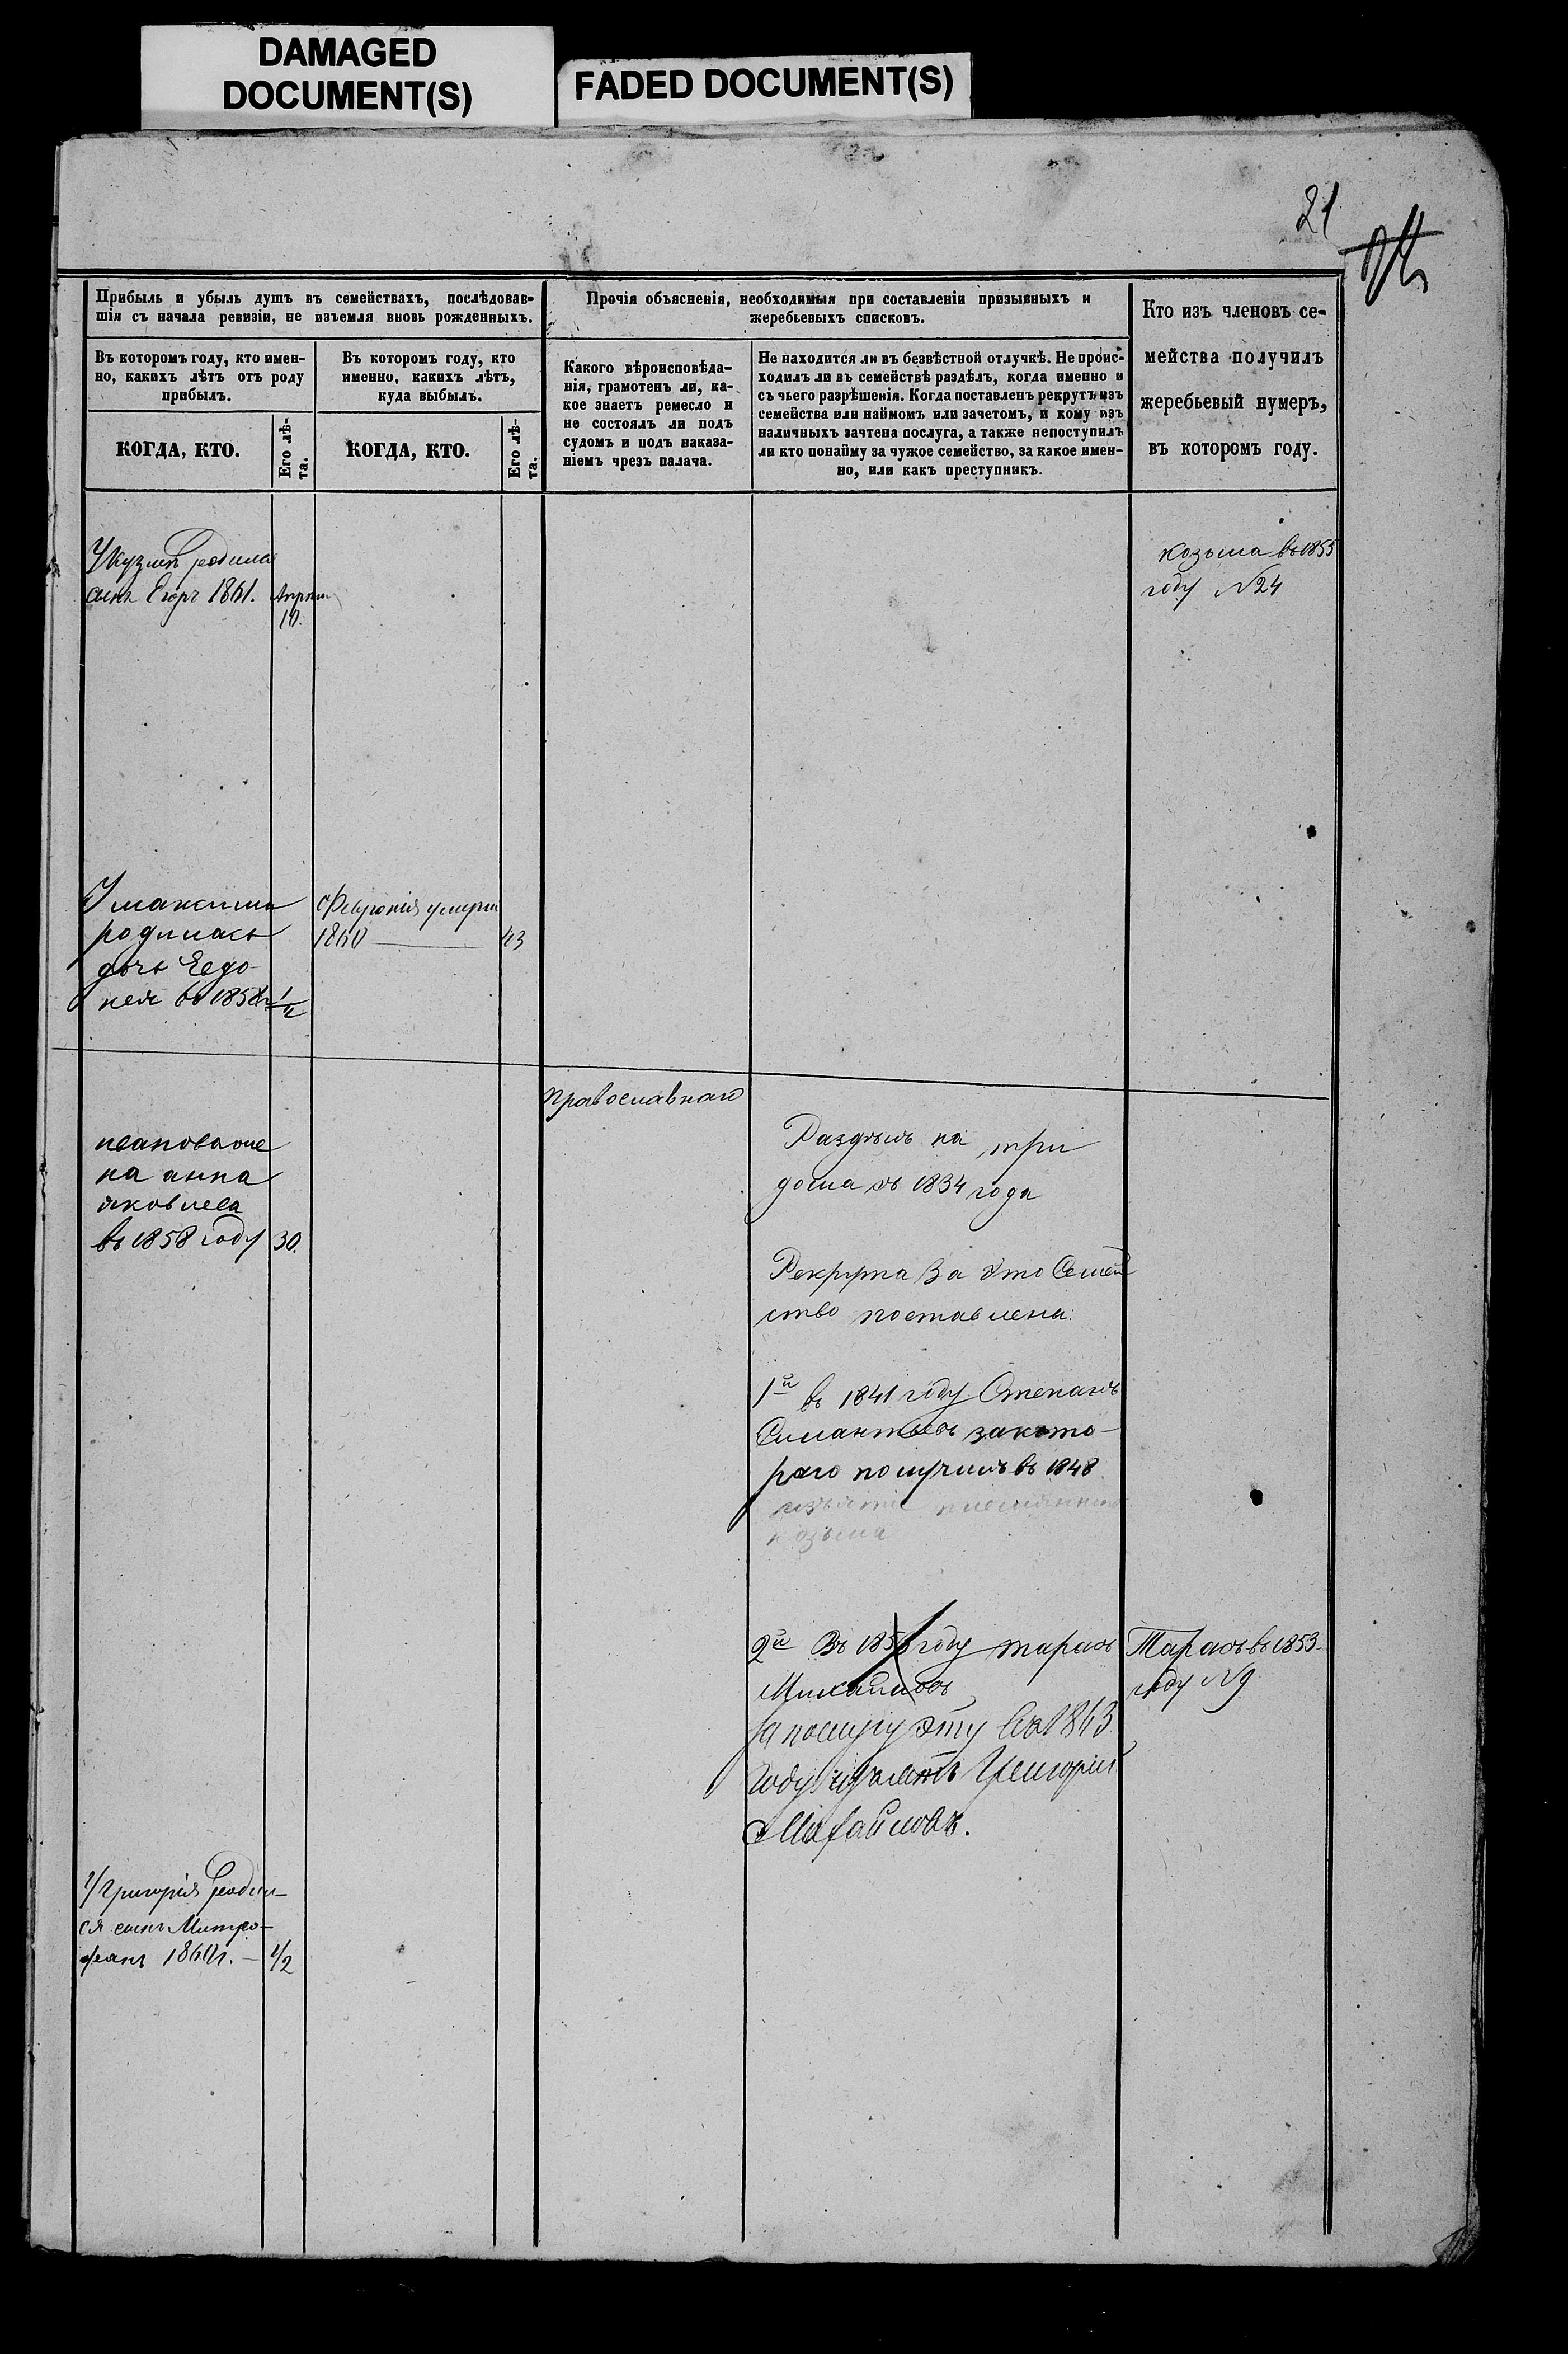 DAMAGED
DOCUMENT(S)
FADED DOCUMENT(S)
21
Прибыль и убыль душъ въ семействахъ, послѣдовав-
шія съ начала ревизіи, не изъемля вновь рожденныхъ.
Прочія объясненія, необходимыя при составленіи призывныхъ и
жеребьевыхъ списковъ.
Кто изъ членовъ се-
мейства получилъ
жеребьевый нумеръ,
въ которомъ году.
Въ которомъ году, кто имен-
но, какихъ лѣтъ отъ роду
прибылъ.
Въ которомъ году, кто
именно, какихъ лѣтъ,
куда выбылъ.
Какого вѣроисповѣда-
нія, грамотенъ ли, ка-
кое знаетъ ремесло и
не состоялъ ли подъ
судомъ и подъ наказа-
ніемъ чрезъ палача.
Не находится ли въ безвѣстной отлучкѣ. Не проис-
ходилъ ли въ семействѣ раздѣлъ, когда именно и
съ чьего разрѣшенія. Когда поставленъ рекрутъ изъ
семейства или наймомъ или зачетомъ, и кому изъ
наличныхъ зачтена послуга, а также непоступилъ
ли кто понайму за чужое семейство, за какое имен-
но, или какъ преступникъ.
КОГДА, КТО.
Его лѣ-
та.
КОГДА, КТО.
Его лѣ-
та.
У Кузьмы родился
сынъ Егоръ 1861.
козьма въ 1855
году №24
У максима
родилась
дочь Евдо-
кея въ 1858 1/2
Февронія умерла
1860 43
православнаго
Раздѣлъ на три
дома съ 1834 года
ивановажe
на анна
яковлева
въ 1858 году 30.
Рекрута За это Семей
ство поставлены:
1й въ 1841 году Степанъ
закото-
раго получилъ въ 1848
изъятіе племянникъ
козьма
2й Въ году тарасъ
Михайловъ
За послугу эту Въ 1863
году изъятъ Григорий
Михайловъ.
Тарасъ въ 1853
году №9
У Григорія родил-
ся сынъ Митро-
фанъ 1860г. — 1/2